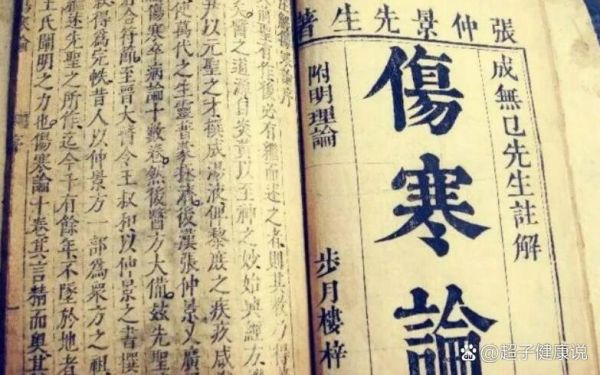 張仲景先生著
成無已先生註解
傷寒論
附明理論
步月樓梓
解傷寒論序
前聖有作後必有繼而述之者則其教乃得
醫之道源自炎黃以至神之妙始興經方
尹以元聖之才撰成湯液俾黎庶之疾疚咸
使萬代之生靈普蒙拯濟後漢張仲景又廣
傷寒卒病論十數卷然後醫方大備茲先聖
若合符節至晉太醫令王叔和以仲景之書撰
敘得為完帙昔人以仲景方一部為眾方之祖
能述先聖之所作迄今千有餘年不墜於地者
王氏闡明之力也傷寒論十卷其言精而奧其
寒論
超子健康说